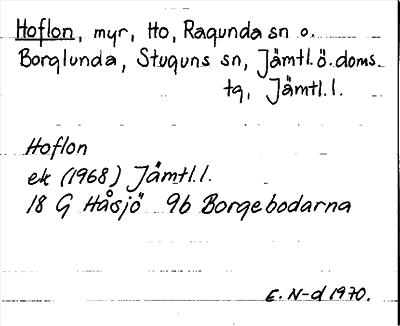 Hoflon, myr, Ho, Ragunda sn o.
Borglunda, Stuguns sn, Jämtl.ö.doms.
tg, Jämtl.l.
Hoflon
ek (1968) Jämtl.l.
18 G Håsjö 9b Borgebodarna
E. N-d 1970.